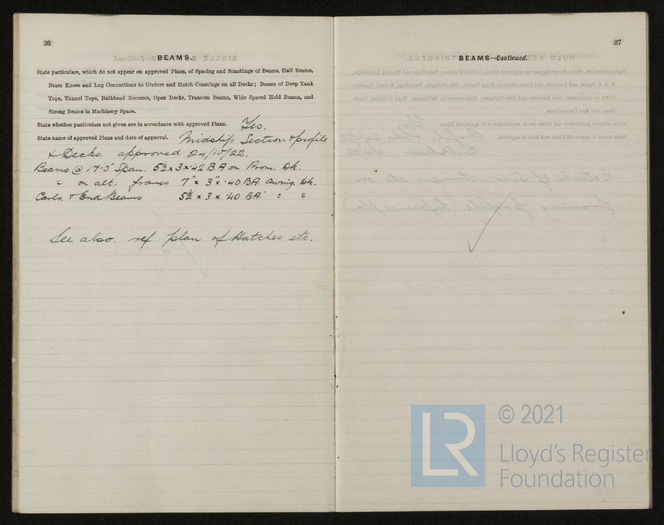 26
BEAMS.
State particulars, which do not appear on approved Plans, of Spacing and Scantlings of Beams, Half Beams,
Beam Knees and Lug Connections to Girders and Hatch Coamings on all Decks; Beams of Deep Tank
Tops, Tunnel Tops, Bulkhead Recesses, Open Decks, Transom Beams, Wide Spaced Hold Beams, and
Strong Beams in Machinery Space.
State whether particulars not given are in accordance with approved Plans. Yes.
State name of approved Plans and date of approval. Midship Section & profile
& Decks. approved 24/10/22.
Beams @ 17'-0" Span. 5½ x 3 x .42 BA on Prom. Dk.
" on alt. frames 7" x 3" x .40 BA. Awning Dk.
Carls. & End Beams 5½ x 3 x .40 BA. " "
See also. ref. plan of Hatches etc.
27
BEAMS—Continued.
© 2021
LR
Lloyd's Register
Foundation